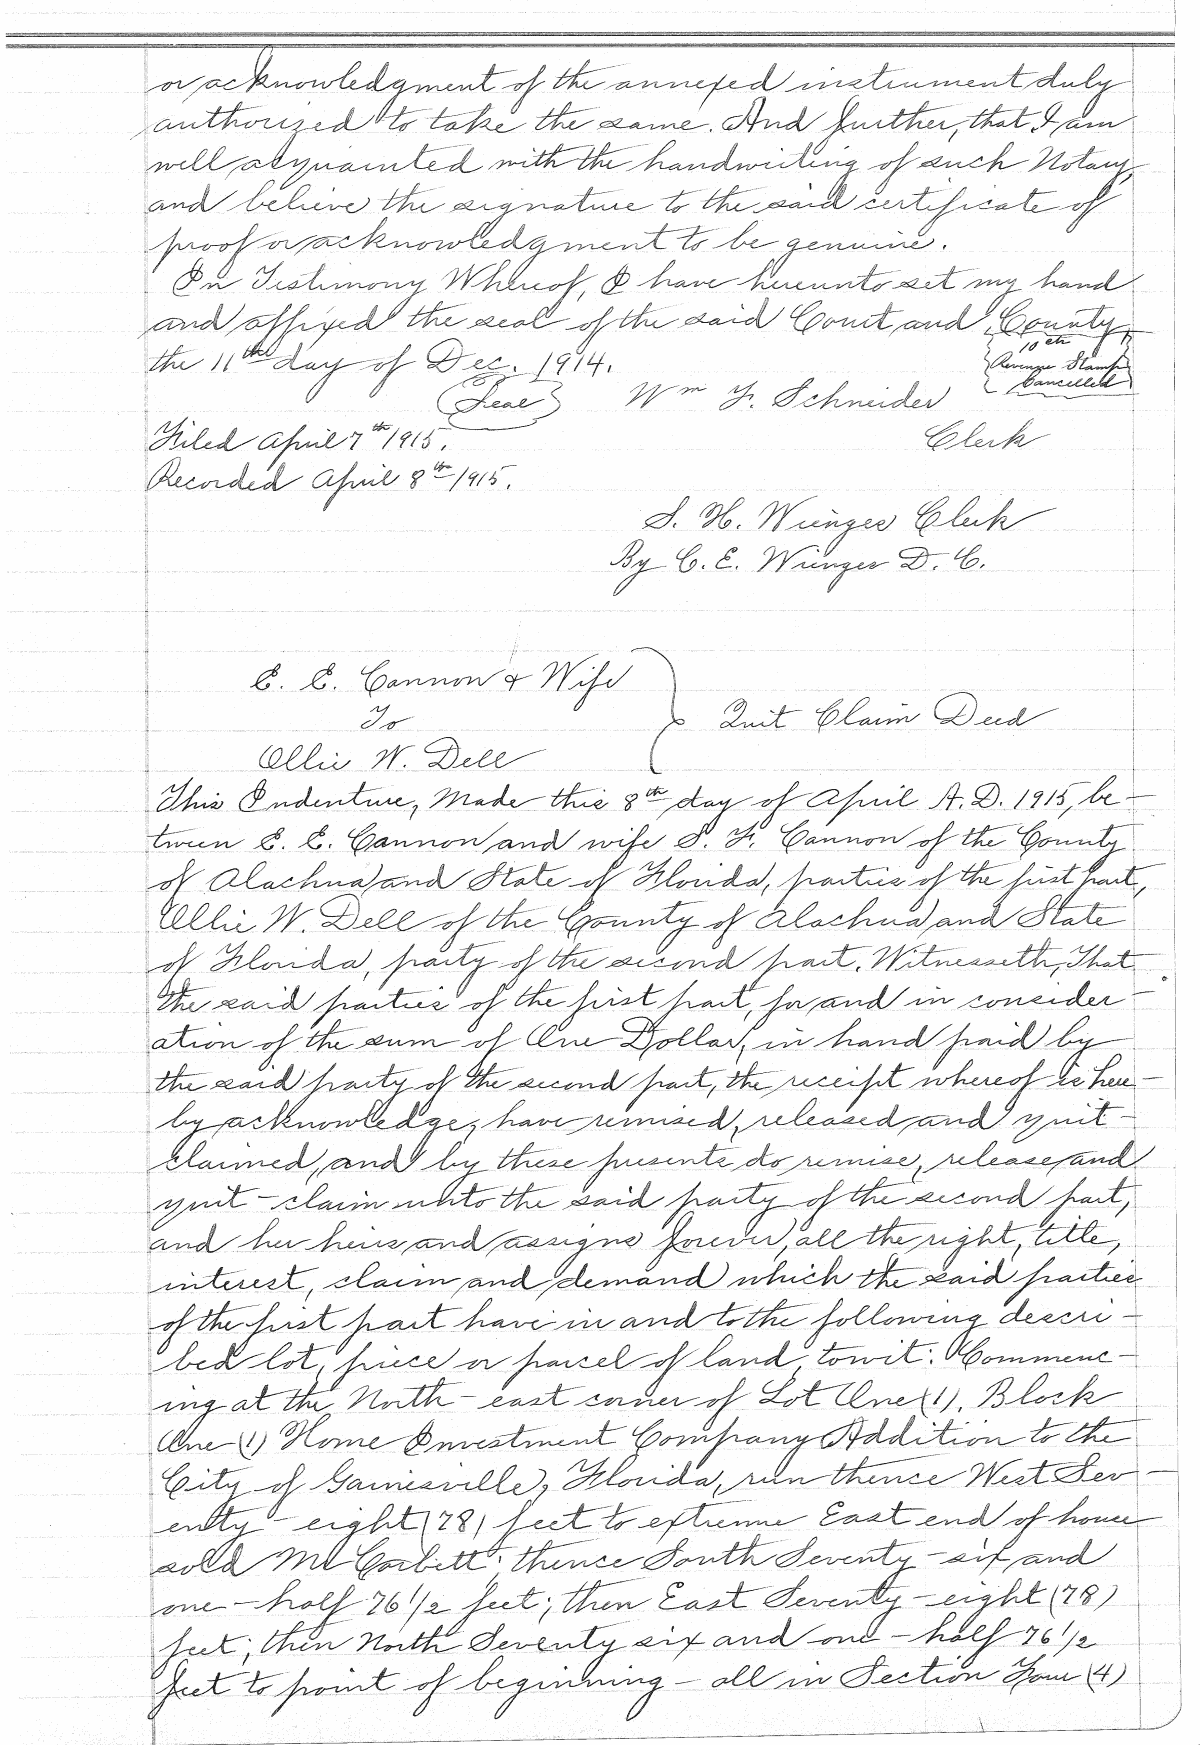 or acknowledgment of the annexed instrument duly
authorized to take the same. And further, that I am
well acquainted with the handwriting of such Notary,
and believe the signature to the said certificate of
proof or acknowledgment to be genuine.
In Testimony Whereof, I have hereunto set my hand
and affixed the seal of the said Court and County,
the 11th day of Dec. 1914.
10 cts
Revenue Stamps
Cancelled
(Seal)
Wm F. Schneider
Clerk
Filed April 7th 1915.
Recorded April 8th 1915.
S. H. Wienges Clerk
By C. E. Wienges D. C.
E. E. Cannon & Wife
To
Ollie W. Dell
Quit Claim Deed
This Indenture, Made this 8th day of April A. D. 1915, be-
tween E. E. Cannon and wife S. F. Cannon of the County
of Alachua and State of Florida, parties of the first part,
Ollie W. Dell of the County of Alachua and State
of Florida, party of the second part. Witnesseth, That
the said parties of the first part, for and in consider-
ation of the sum of One Dollar, in hand paid by
the said party of the second part, the receipt whereof is here-
by acknowledge, have remised, released and quit-
claimed, and by these presents do remise, release and
quit-claim unto the said party of the second part,
and her heirs and assigns forever, all the right, title,
interest, claim and demand which the said parties
of the first part have in and to the following descri-
bed lot, piece or parcel of land, towit: Commenc-
ing at the North-east corner of Lot One (1), Block
One (1) Home Investment Company Addition to the
City of Gainesville, Florida, run thence West Sev-
enty-eight (78) feet to extreme East end of house
sold Mr Corbett; thence South Seventy-six and
one-half 76 1/2 feet; then East Seventy-eight (78)
feet; then North Seventy six and one-half 76 1/2
feet to point of beginning - all in Section Four (4)